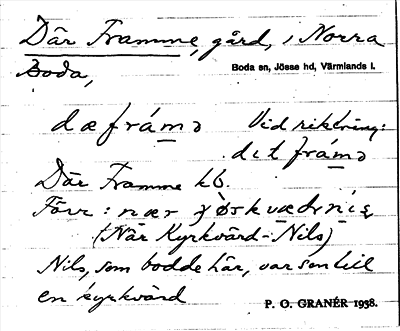 Där Framme, gård, i Norra
Boda,
Boda sn, Jösse hd, Värmlands l.
dæ frámə
Vid riktning:
dit frámə
Där Framme kb.
Förr: nær
(När Kyrkvärd-Nils)
Nils, som bodde här, var son till
en kyrkvärd
P. G. GRANÉR 1938.